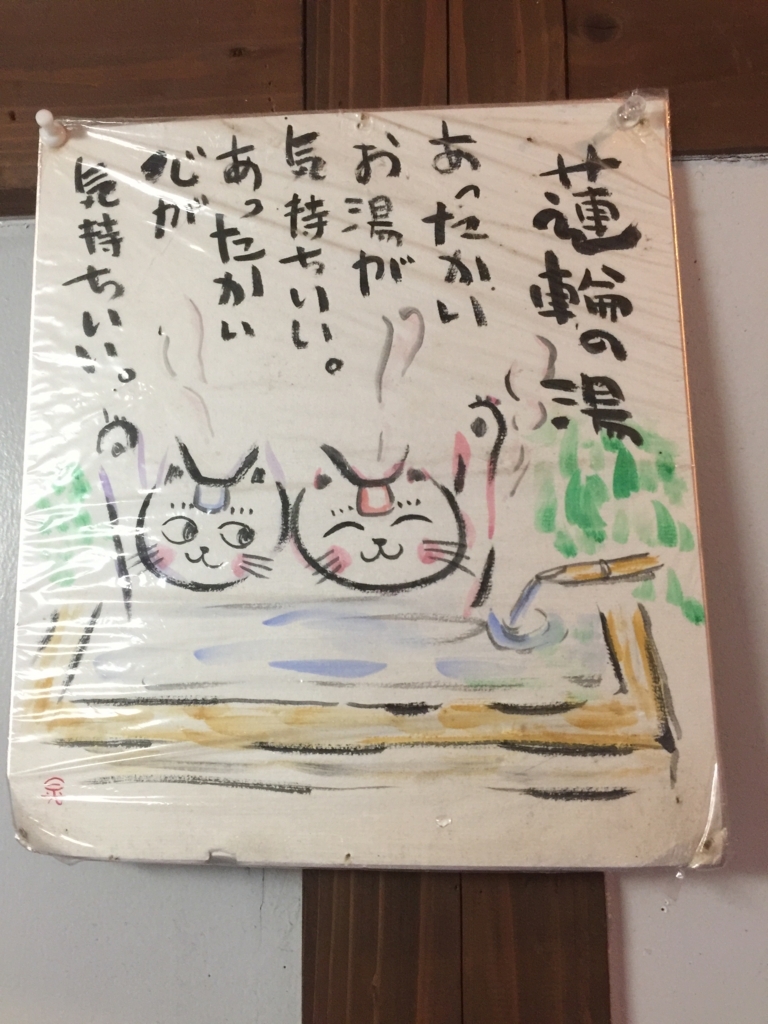 蓮輪の湯
あったかい
お湯が
気持ちいい。
あったかい
心が
気持ちいい。